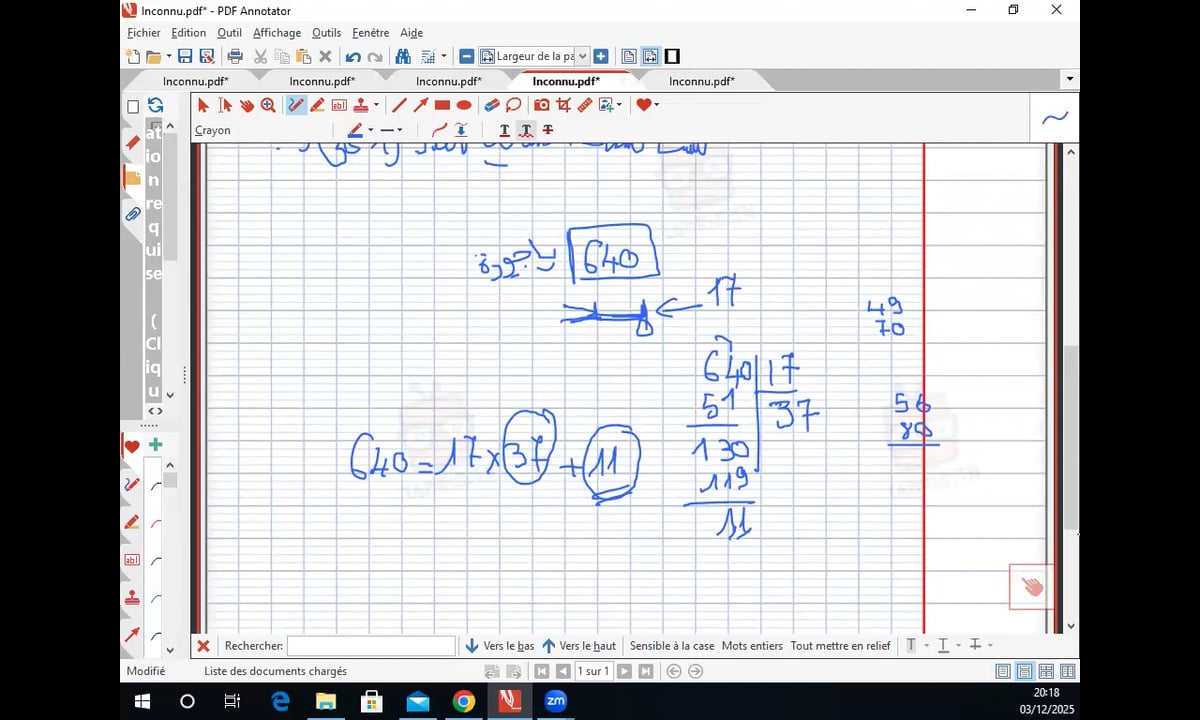 Inconnu.pdf* - PDF Annotator
Fichier Edition Outil Affichage Outils Fenêtre Aide
Largeur de la pa
Inconnu.pdf* Inconnu.pdf* Inconnu.pdf* Inconnu.pdf* Inconnu.pdf*
Crayon
at
io
n
re
q
ui
se
(
Cl
iq
u
640
17
49
70
640 17
51 37
130
119
11
56
80
640 = 17 × 37 + 11
Rechercher: Vers le bas Vers le haut Sensible à la case Mots entiers Tout mettre en relief
Modifié Liste des documents chargés 1 sur 1
zm
20:18
03/12/2025